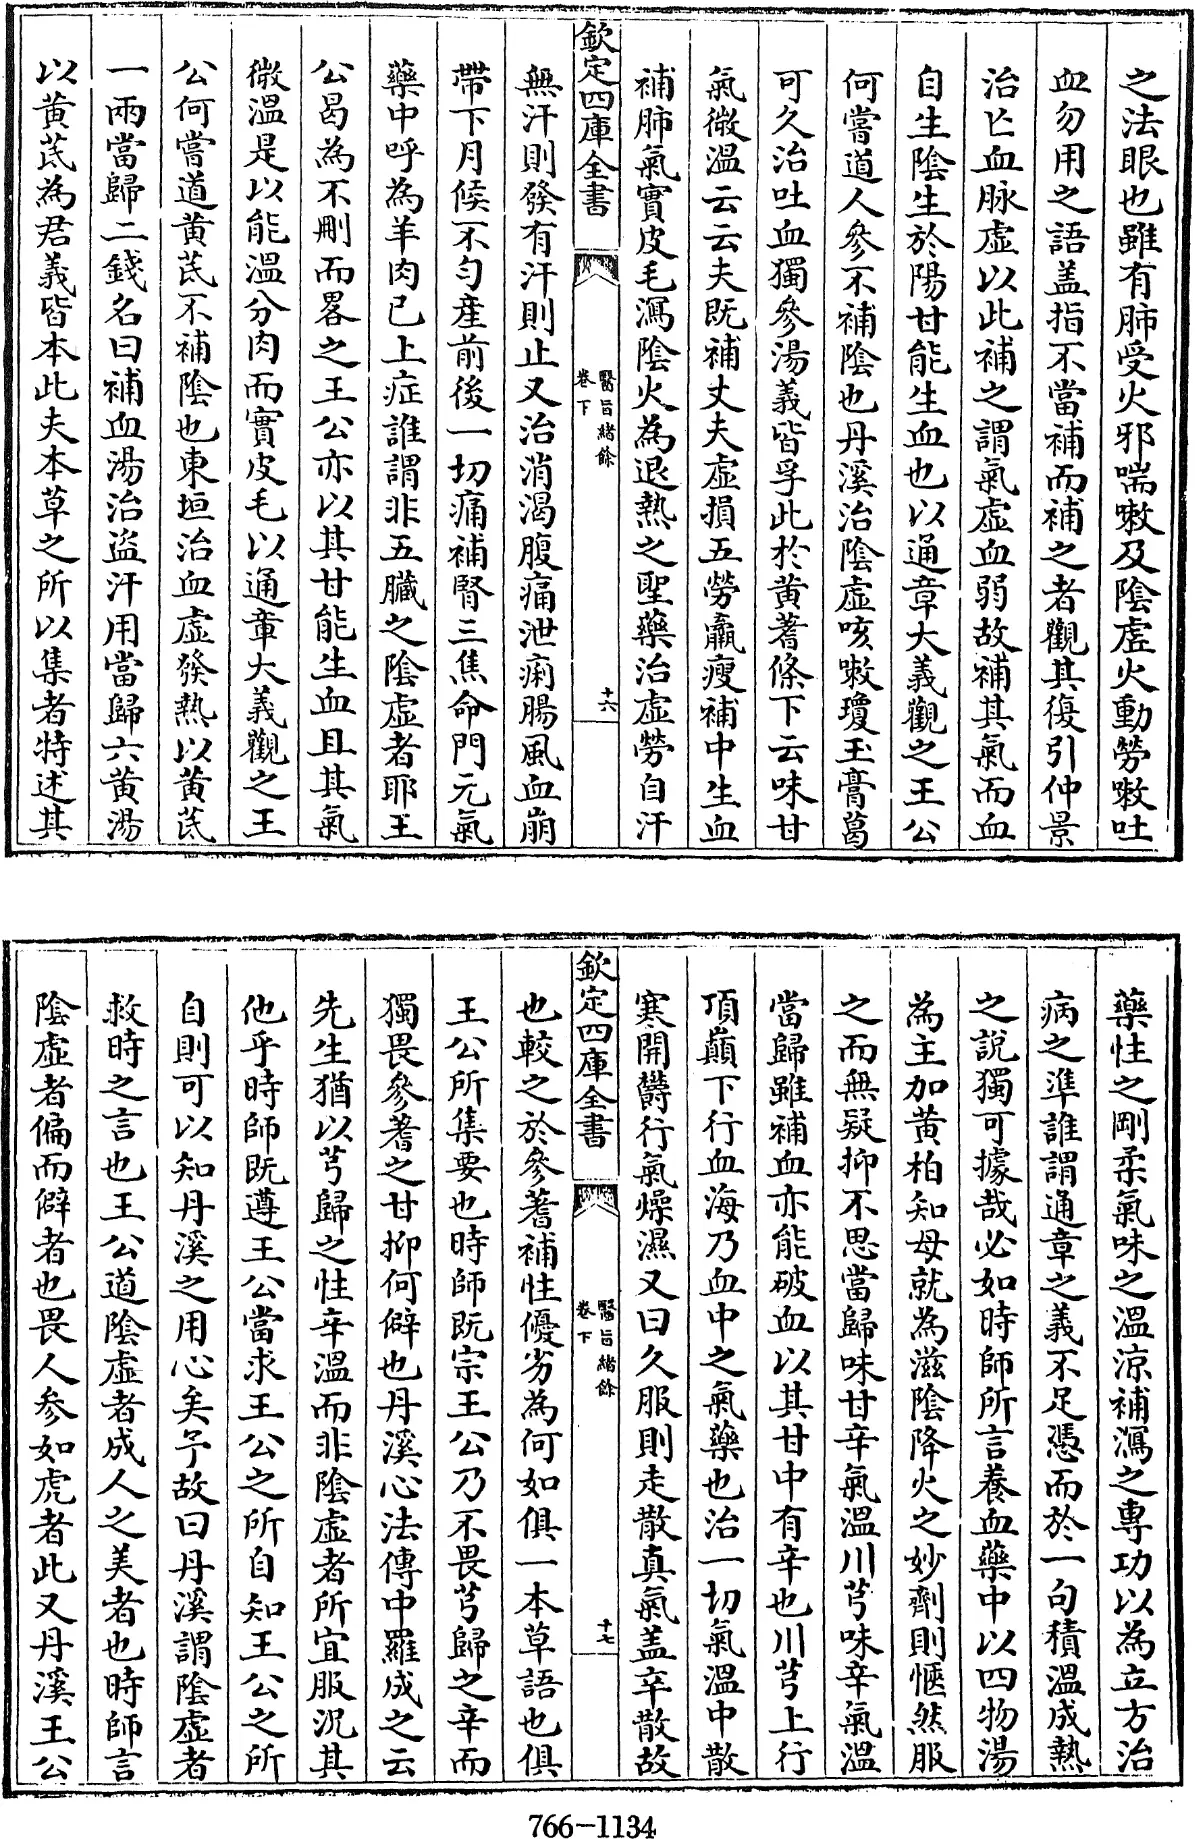 之法眼也雖有肺受火邪喘嗽及陰虚火動勞嗽吐
血勿用之語盖指不當補而補之者觀其復引仲景
治亡血脉虚以此補之謂氣虚血弱故補其氣而血
自生陰生於陽甘能生血也以通章大義觀之王公
何嘗道人參不補陰也丹溪治陰虚咳嗽瓊玉膏葛
可久治吐血獨參湯義皆孚此扵黄蓍條下云味甘
氣微溫云云夫既補丈夫虚損五勞羸瘦補中生血
補肺氣實皮毛瀉陰火為退熱之聖藥治虚勞自汗
欽定四庫全書
醫旨緒餘
卷下
十六
無汗則發有汗則止又治消渴腹痛泄痢腸風血崩
帶下月候不匀產前後一切痛補腎三焦命門元氣
藥中呼為羊肉已上症誰謂非五臟之陰虚者耶王
公曷為不刪而畧之王公亦以其甘能生血且其氣
微溫是以能溫分肉而實皮毛以通章大義觀之王
公何嘗道黄芪不補陰也東垣治血虚發熱以黄芪
一兩當歸二錢名曰補血湯治盗汗用當歸六黄湯
以黄芪為君義皆本此夫本草之所以集者特述其
藥性之剛柔氣味之溫涼補瀉之專功以為立方治
病之準誰謂通章之義不足憑而於一句積溫成熱
之說獨可據哉必如時師所言養血藥中以四物湯
為主加黄柏知母就為滋陰降火之妙劑則愜然服
之而無疑抑不思當歸味甘辛氣溫川芎味辛氣溫
當歸雖補血亦能破血以其甘中有辛也川芎上行
頂巔下行血海乃血中之氣藥也治一切氣溫中散
寒開鬱行氣燥濕又曰久服則走散真氣盖辛散故
欽定四庫全書
醫旨緒餘
卷下
十七
也較之於參蓍補性優劣為何如俱一本草語也俱
王公所集要也時師既宗王公乃不畏芎歸之辛而
獨畏參蓍之甘抑何僻也丹溪心法傳中羅成之云
先生猶以芎歸之性辛溫而非陰虚者所宜服況其
他乎時師既遵王公當求王公之所自知王公之所
自則可以知丹溪之用心矣予故曰丹溪謂陰虚者
救時之言也王公道陰虚者成人之美者也時師言
陰虚者偏而僻者也畏人參如虎者此又丹溪王公
766-1134